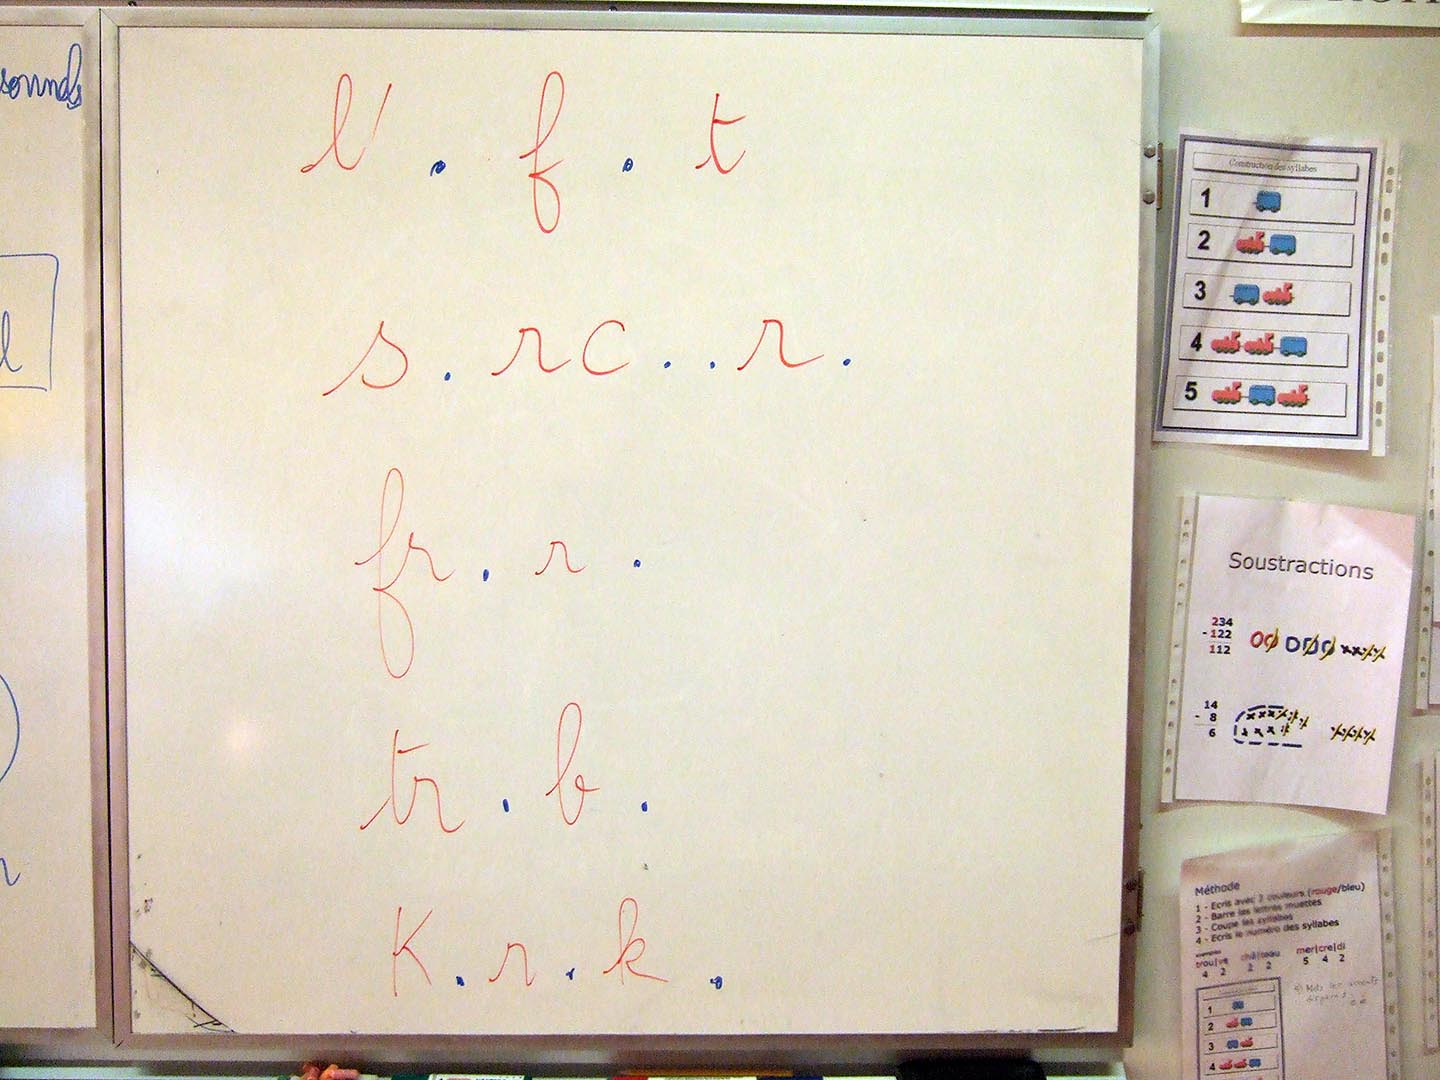 sounds
l' . f . t
s . rc . . r .
fr . r .
tr . b .
K . r . k .
Construction des syllabes
1
2
3
4
5
Soustractions
234
- 122
112
14
- 8
6
Méthode
1 - Ecris avec 2 couleurs (rouge/bleu)
2 - Barre les lettres muettes
3 - Coupe les syllabes
4 - Ecris le numéro des syllabes
trou|ve châ|teau mer|cre|di
4 2 2 2 5 4 2
1
2
3
4